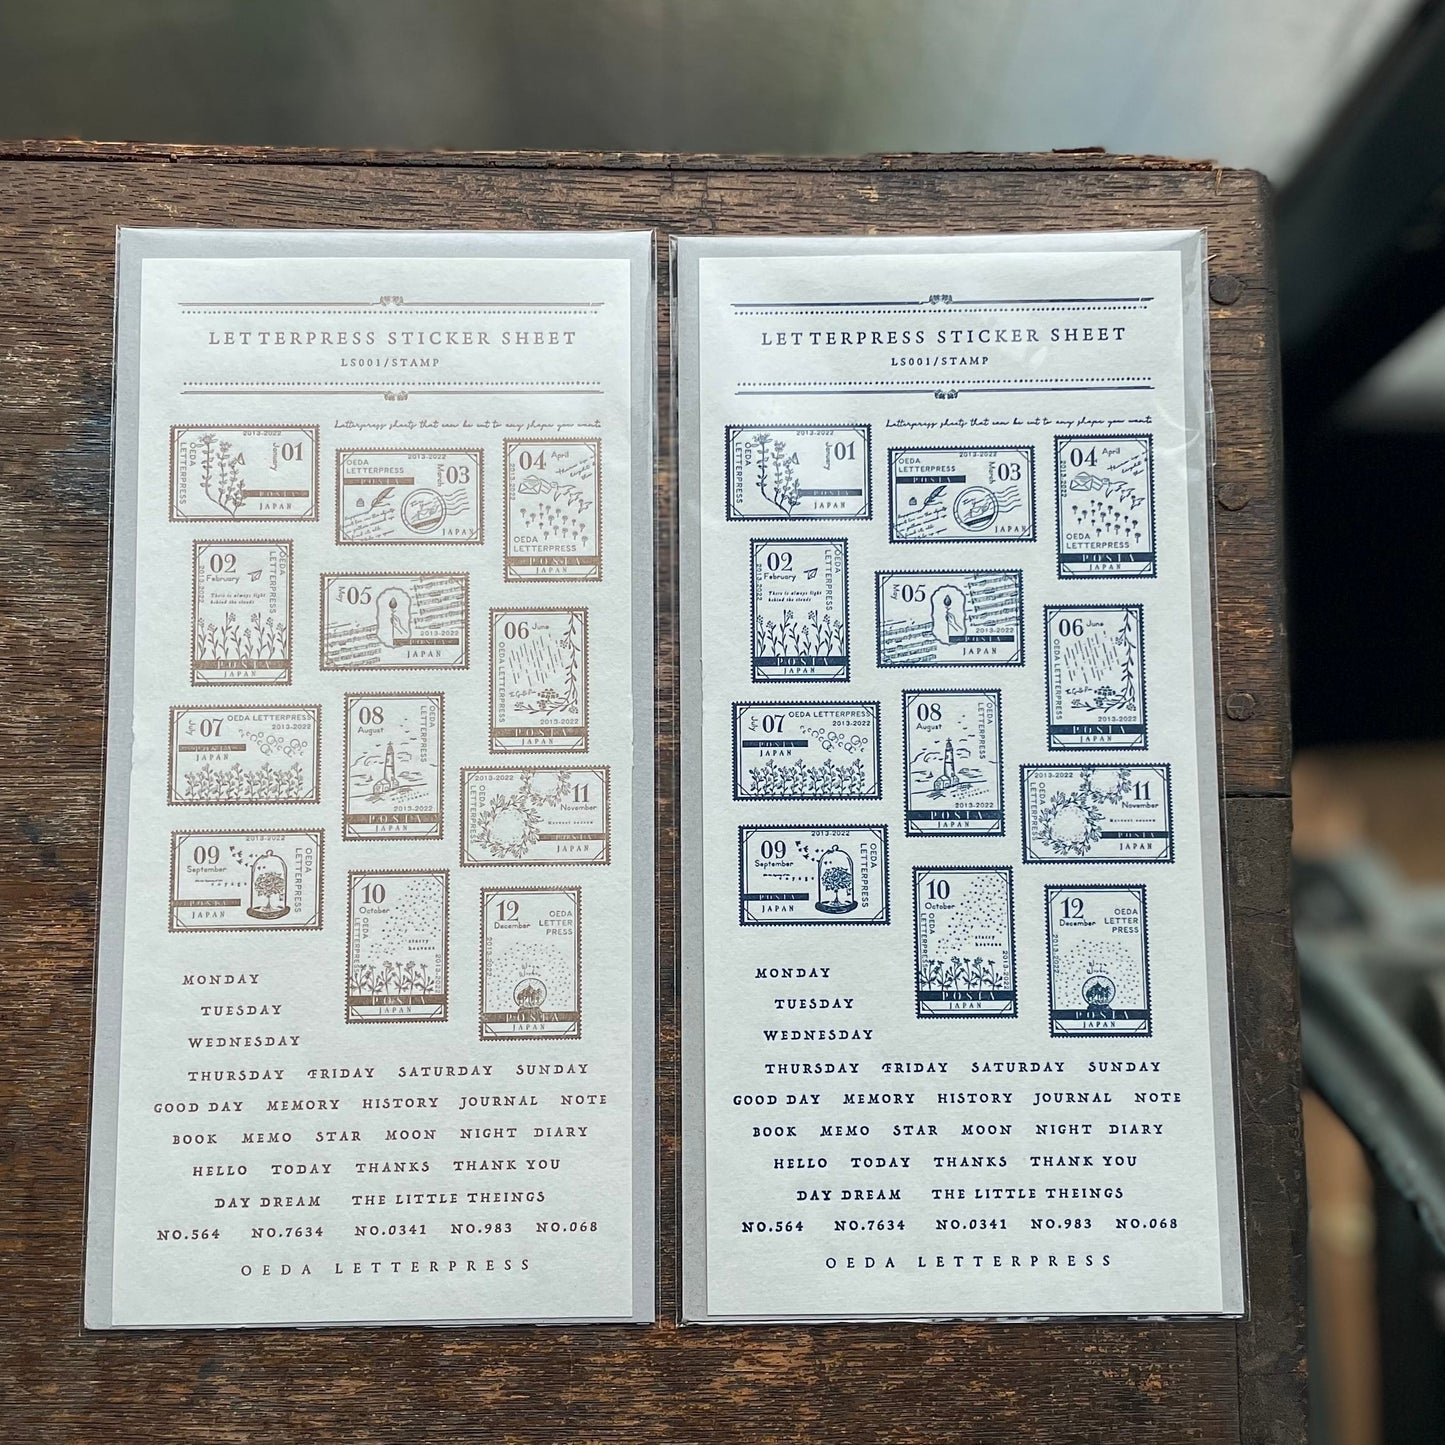 LETTERPRESS STICKER SHEET
LS001/STAMP
Letterpress sheets that can be cut to any shapes you want.
2013-2022
January 01
OEDA LETTERPRESS
POSTA
JAPAN
OEDA LETTERPRESS
2013-2022
March 03
POSTA
JAPAN
04 April
OEDA LETTERPRESS
POSTA
JAPAN
02
February
OEDA LETTERPRESS
2013-2022
There is always light
behind the clouds
POSTA
JAPAN
May 05
POSTA
2013-2022
JAPAN
06 June
OEDA LETTERPRESS
2013-2022
POSTA
JAPAN
July 07
OEDA LETTERPRESS
2013-2022
POSTA
JAPAN
08
August
OEDA LETTERPRESS
2013-2022
POSTA
JAPAN
2013-2022
OEDA LETTERPRESS
11
November
POSTA
JAPAN
2013-2022
09
September
OEDA LETTERPRESS
voyage
POSTA
JAPAN
10
October
OEDA LETTERPRESS
starry
heavens
2013-2022
POSTA
JAPAN
12
December
OEDA
LETTER
PRESS
2013-2022
POSTA
JAPAN
MONDAY
TUESDAY
WEDNESDAY
THURSDAY FRIDAY SATURDAY SUNDAY
GOOD DAY MEMORY HISTORY JOURNAL NOTE
BOOK MEMO STAR MOON NIGHT DIARY
HELLO TODAY THANKS THANK YOU
DAY DREAM THE LITTLE THEINGS
NO.564 NO.7634 NO.0341 NO.983 NO.068
OEDA LETTERPRESS
LETTERPRESS STICKER SHEET
LS001/STAMP
Letterpress sheets that can be cut to any shapes you want.
2013-2022
January 01
OEDA LETTERPRESS
POSTA
JAPAN
OEDA LETTERPRESS
2013-2022
March 03
POSTA
JAPAN
04 April
OEDA LETTERPRESS
POSTA
JAPAN
02
February
OEDA LETTERPRESS
2013-2022
There is always light
behind the clouds
POSTA
JAPAN
May 05
POSTA
2013-2022
JAPAN
06 June
OEDA LETTERPRESS
2013-2022
POSTA
JAPAN
July 07
OEDA LETTERPRESS
2013-2022
POSTA
JAPAN
08
August
OEDA LETTERPRESS
2013-2022
POSTA
JAPAN
2013-2022
OEDA LETTERPRESS
11
November
POSTA
JAPAN
2013-2022
09
September
OEDA LETTERPRESS
voyage
POSTA
JAPAN
10
October
OEDA LETTERPRESS
starry
heavens
2013-2022
POSTA
JAPAN
12
December
OEDA
LETTER
PRESS
2013-2022
POSTA
JAPAN
MONDAY
TUESDAY
WEDNESDAY
THURSDAY FRIDAY SATURDAY SUNDAY
GOOD DAY MEMORY HISTORY JOURNAL NOTE
BOOK MEMO STAR MOON NIGHT DIARY
HELLO TODAY THANKS THANK YOU
DAY DREAM THE LITTLE THEINGS
NO.564 NO.7634 NO.0341 NO.983 NO.068
OEDA LETTERPRESS